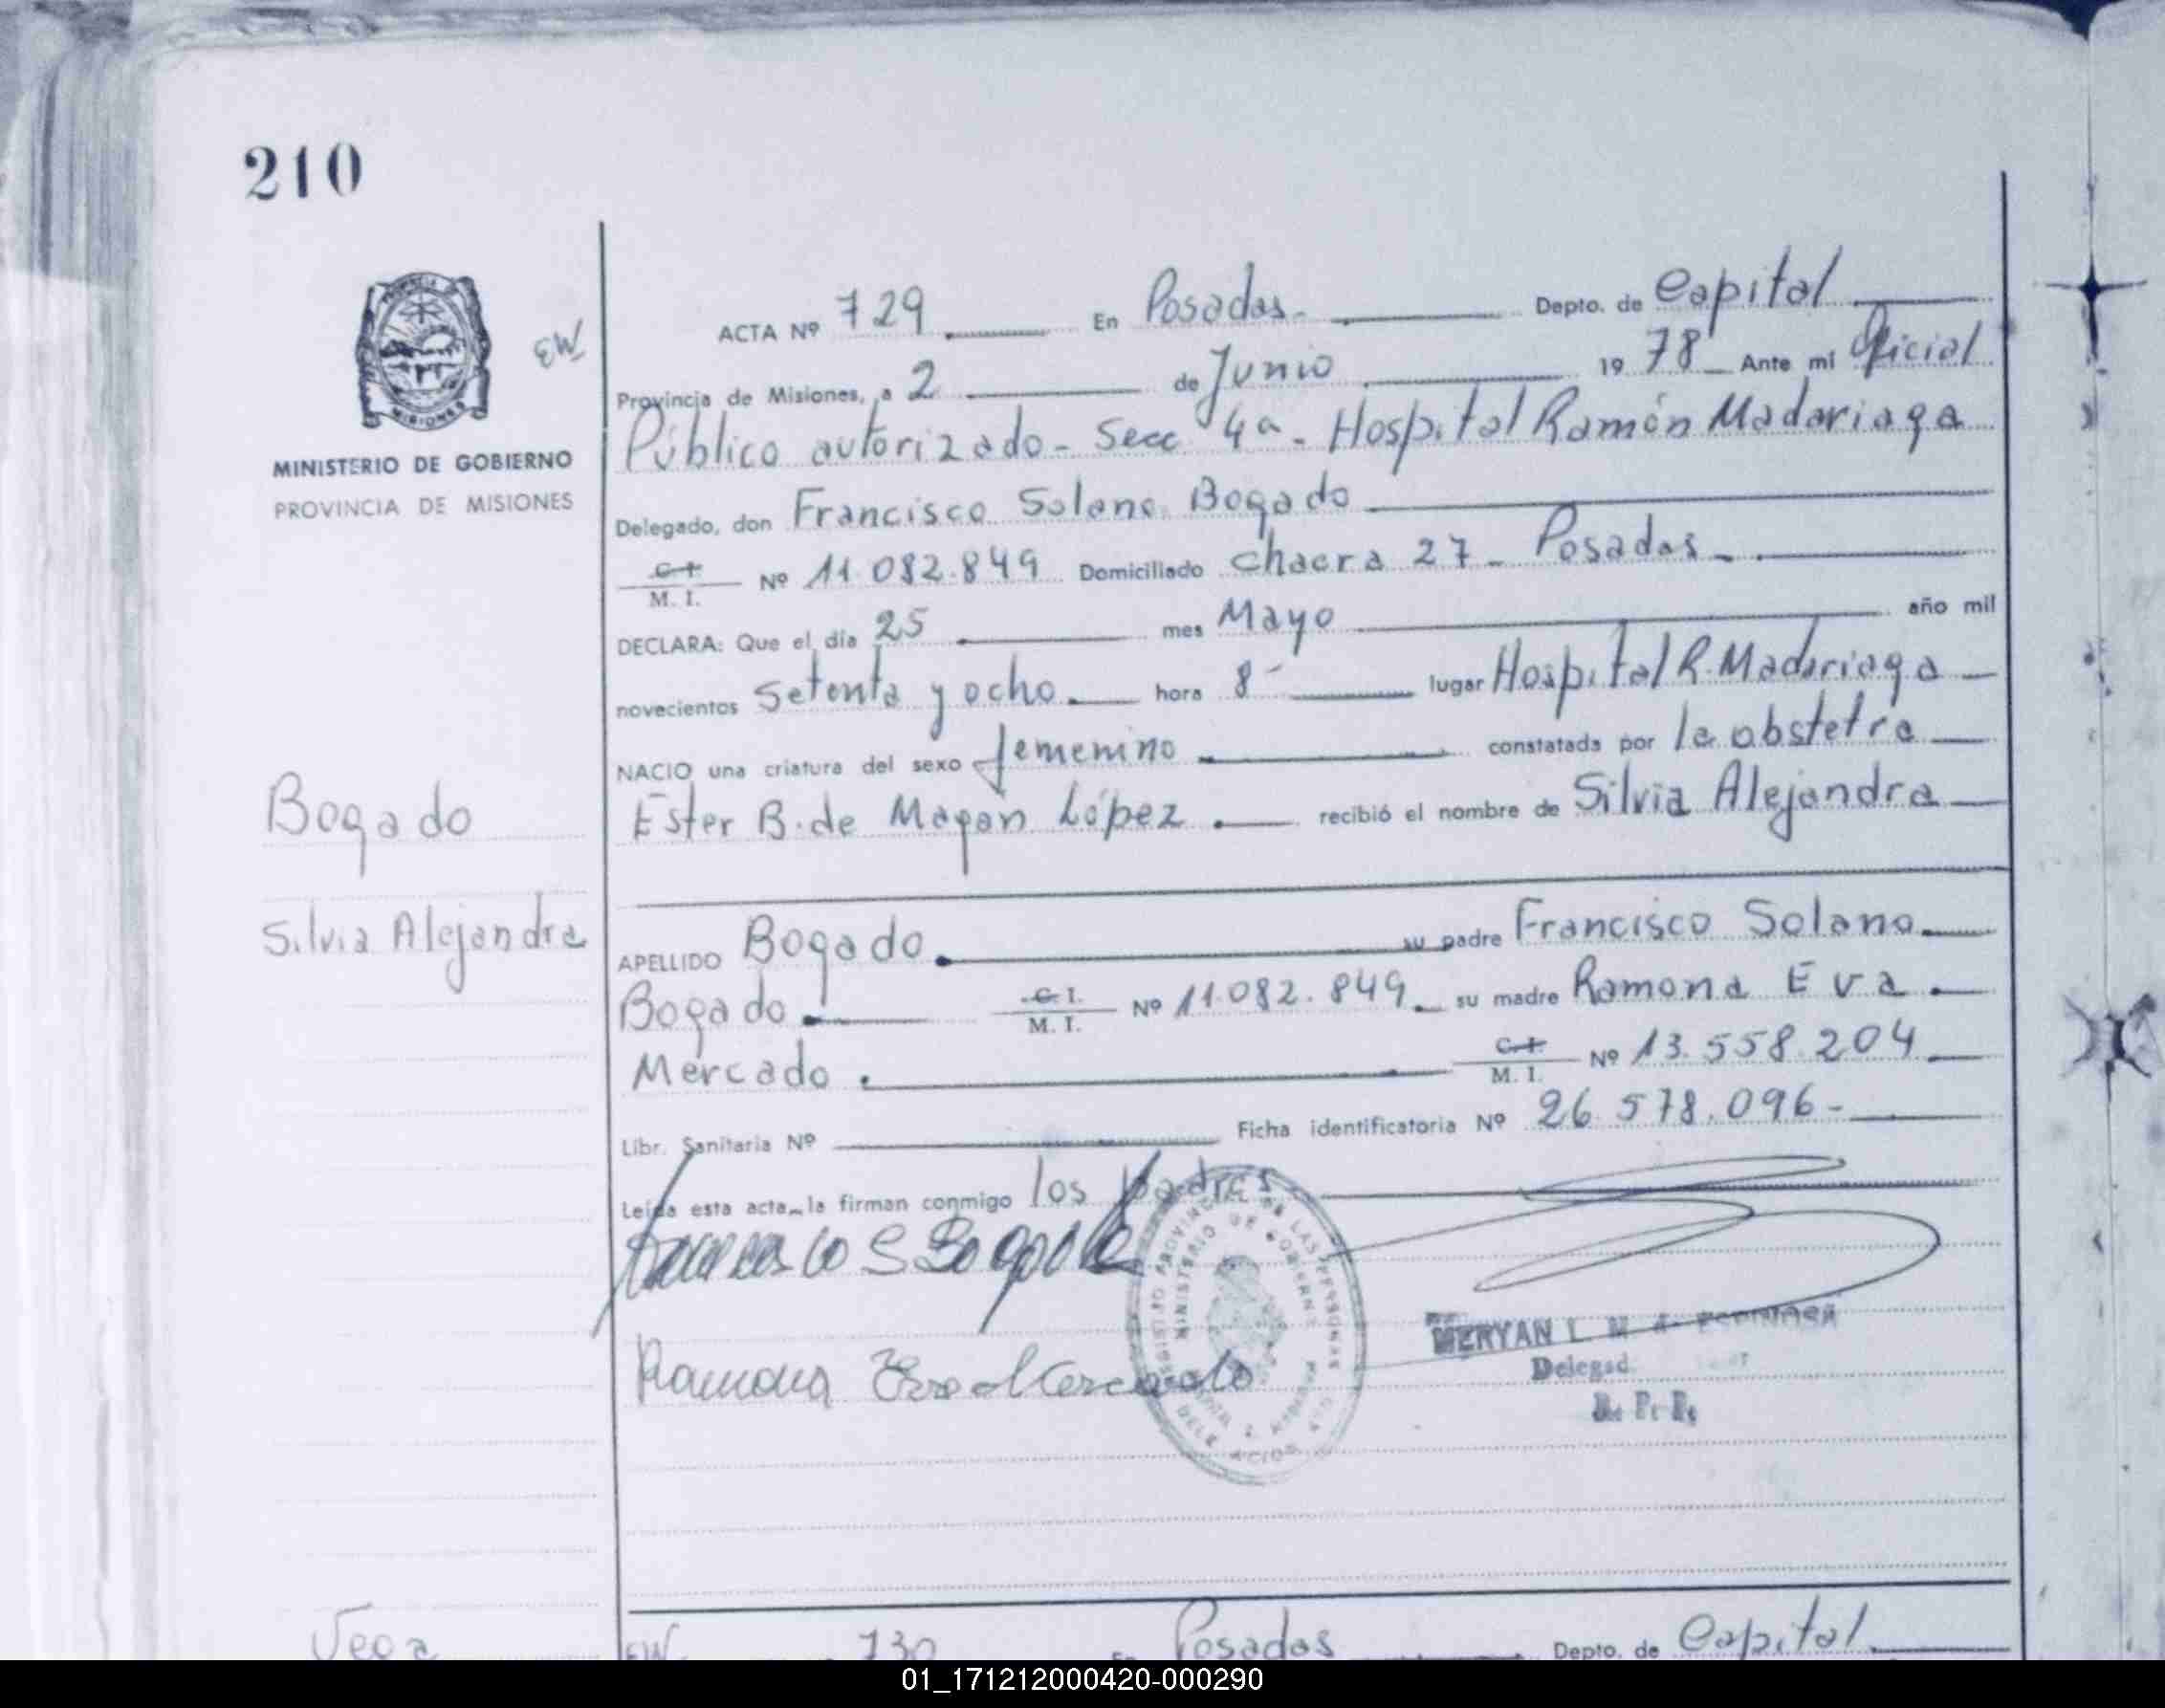 210
EW
MINISTERIO DE GOBIERNO
PROVINCIA DE MISIONES
Bogado
Silvia Alejandra
ACTA Nº 729 En Posadas Depto. de Capital
Provincia de Misiones, a 2 de Junio 1978 Ante mi Oficial
Público autorizado - Secc 4a - Hospital Ramón Madariaga
Delegado, don Francisco Solano Bogado
C. I. M. I. Nº 11.082.849 Domiciliado chacra 27 - Posadas -
DECLARA: Que el día 25 mes Mayo año mil
novecientos setenta y ocho hora 8 lugar Hospital R. Madariaga
NACIO una criatura del sexo femenino constatada por la obstetra
Ester B. de Magan López recibió el nombre de Silvia Alejandra
APELLIDO Bogado su padre Francisco Solano
Bogado C. I. M. I. Nº 11.082.849 su madre Ramona Eva
Mercado C. I. M. I. Nº 13.558.204
Libr. Sanitaria Nº Ficha identificatoria Nº 26.578.096 -
Leída esta acta, la firman conmigo los padres
Francisco S Bogado
Ramona Eva Mercado
MINISTERIO DE GOBIERNO
MERYAN L. ESPINOSA
Delegad
R. P. P.
Vega
EW 730 En Posadas Depto. de Capital
01_171212000420-000290